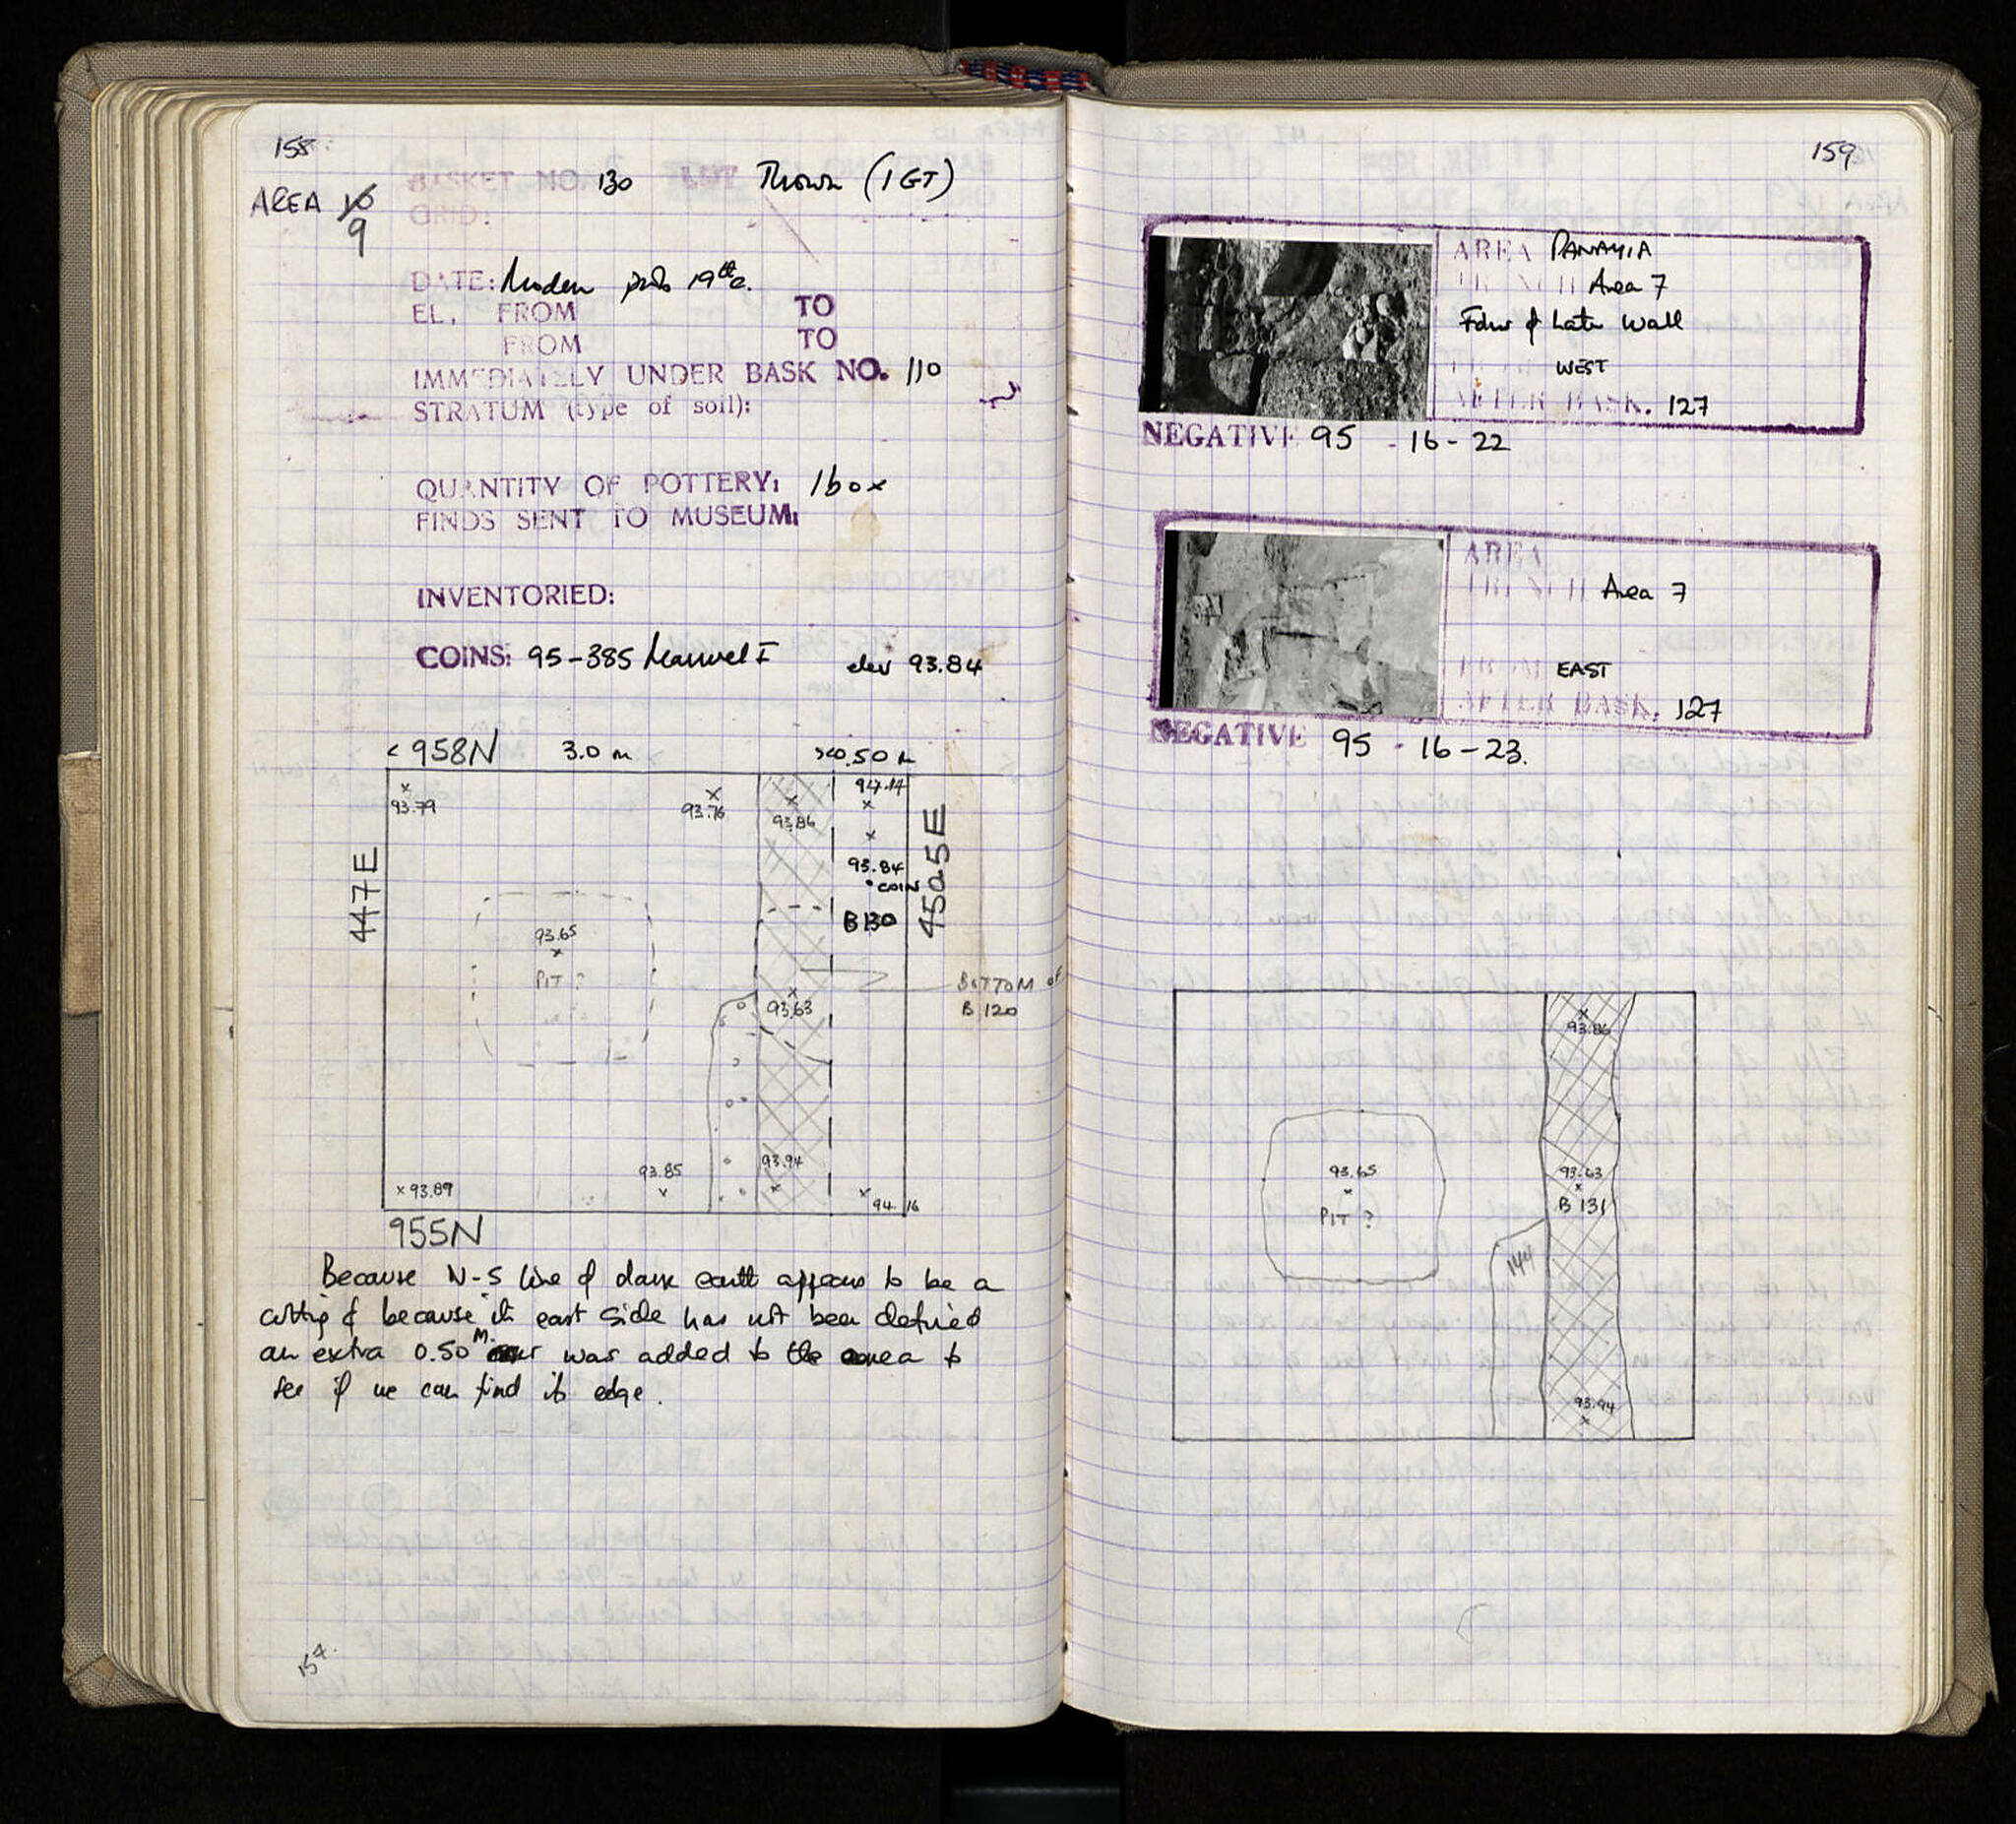 158
BASKET NO. 130 LOT Thrown (1 GT)
AREA 16
9
GRID:
DATE: Modern prob 19th c.
EL. FROM TO
FROM TO
IMMEDIATELY UNDER BASK NO. 110
STRATUM (type of soil):
QUANTITY OF POTTERY: 1 box
FINDS SENT TO MUSEUM:
INVENTORIED:
COINS: 95-385 Manuel I elev 93.84
< 958N 3.0 m >< 0.50 m
93.79
93.76
93.86
94.14
93.84
COIN
B 130
447E
450.5E
93.65
PIT ?
93.63
BOTTOM of
B 120
93.85
93.94
93.89
94.16
955N
Because N-S line of dark earth appears to be a
cutting & because its east side has not been defined
an extra 0.50 M. was added to the area to
see if we can find its edge.
154.
159
AREA PANAYIA
TRENCH Area 7
Fdns of Late Wall
FROM WEST
AFTER BASK. 127
NEGATIVE 95 - 16 - 22
AREA
TRENCH Area 7
FROM EAST
AFTER BASK. 127
NEGATIVE 95 - 16 - 23.
93.86
93.65
PIT ?
93.63
B 131
144
93.94